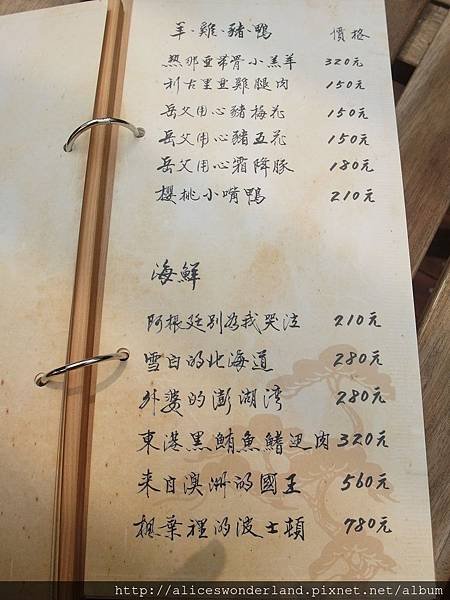 羊.雞.豬.鴨 價格
熱那亞帶骨小羔羊 320元
利古里亞雞腿肉 150元
岳父用心豬梅花 150元
岳父用心豬五花 150元
岳父用心霜降豚 180元
櫻桃小嘴鴨 210元
海鮮
阿根廷別為我哭泣 210元
雪白的北海道 280元
外婆的澎湖灣 280元
東港黑鮪魚鰭邊肉 320元
来自澳洲的國王 560元
楓葉裡的波士頓 780元
http://aliceswonderland.pixnet.net/album